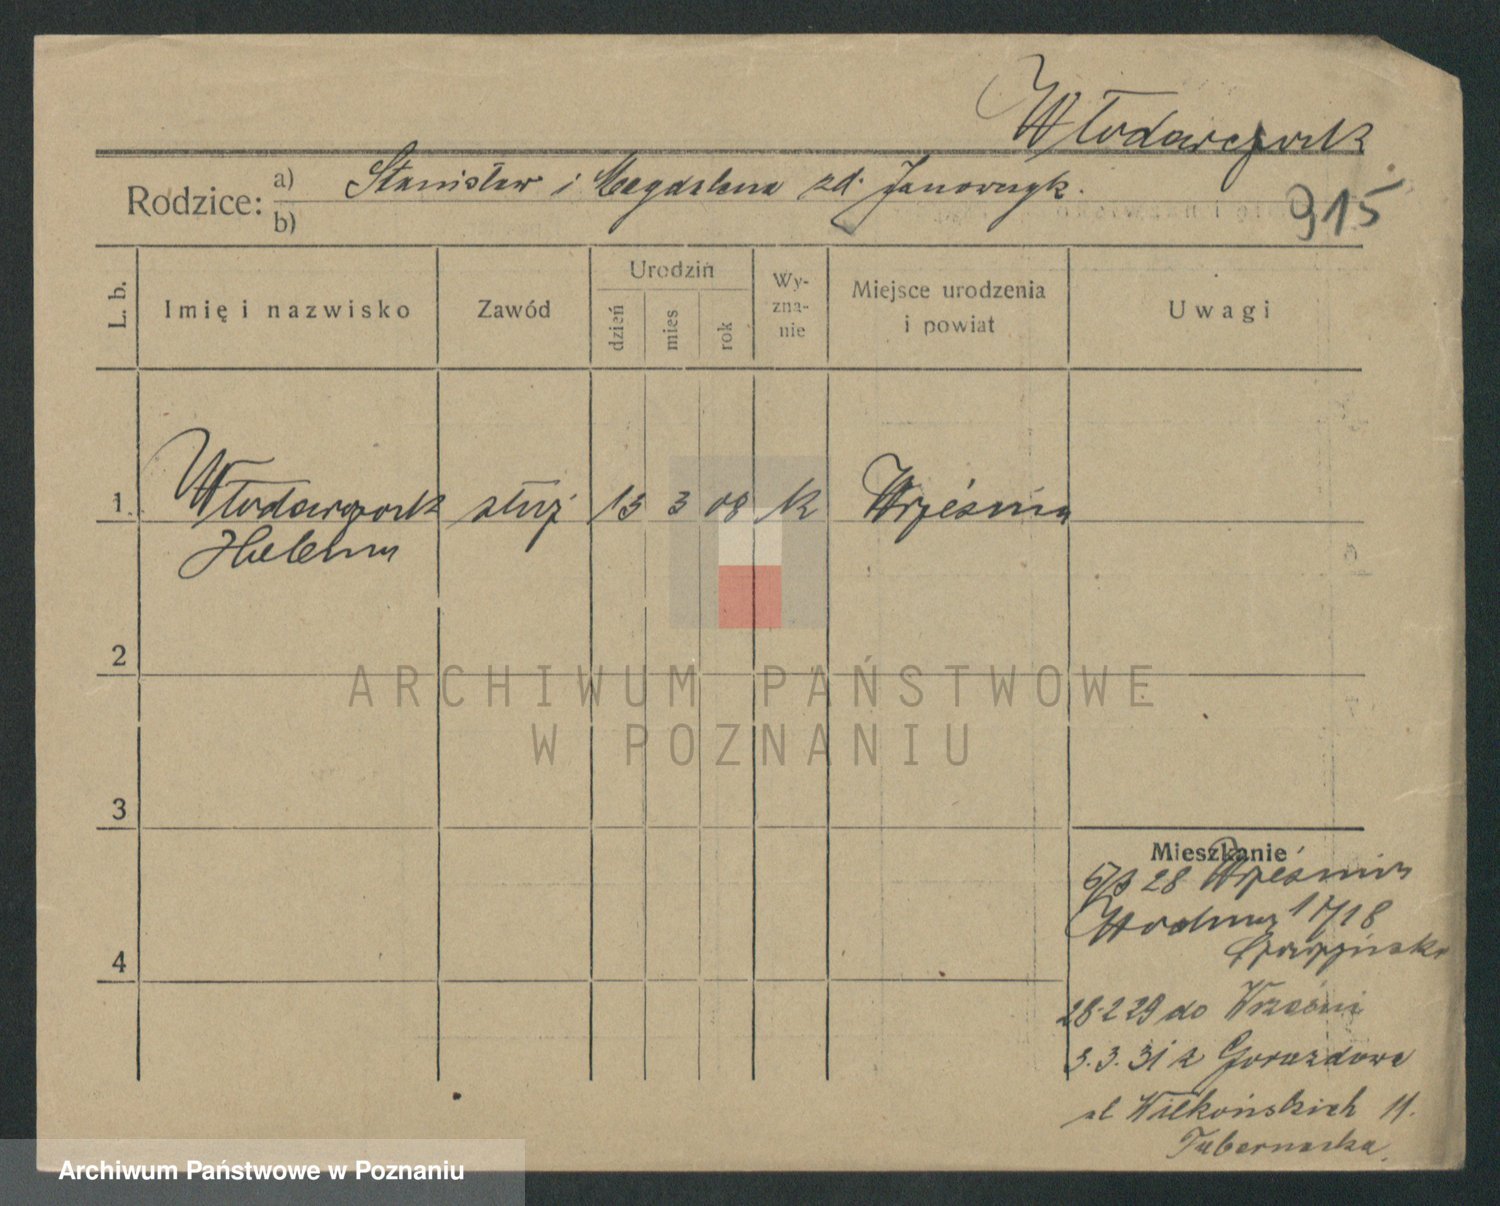 Włodarczak
Rodzice: a) Stanisław i Magdalena zd. Janowczyk.
b)
915
L. b.
Imię i nazwisko
Zawód
Urodzin
dzień
mies
rok
Wy-
zna-
nie
Miejsce urodzenia
i powiat
Uwagi
1 Włodarczak służ 13 3 08 k Września
Helena
2
ARCHIWUM PAŃSTWOWE
W POZNANIU
3
Mieszkanie
28 Września
18
4
28.2 29 do Wrześni
3.3.31 z Gorazdowa
ul Wilkońskich 11.
Tabernacka
Archiwum Państwowe w Poznaniu